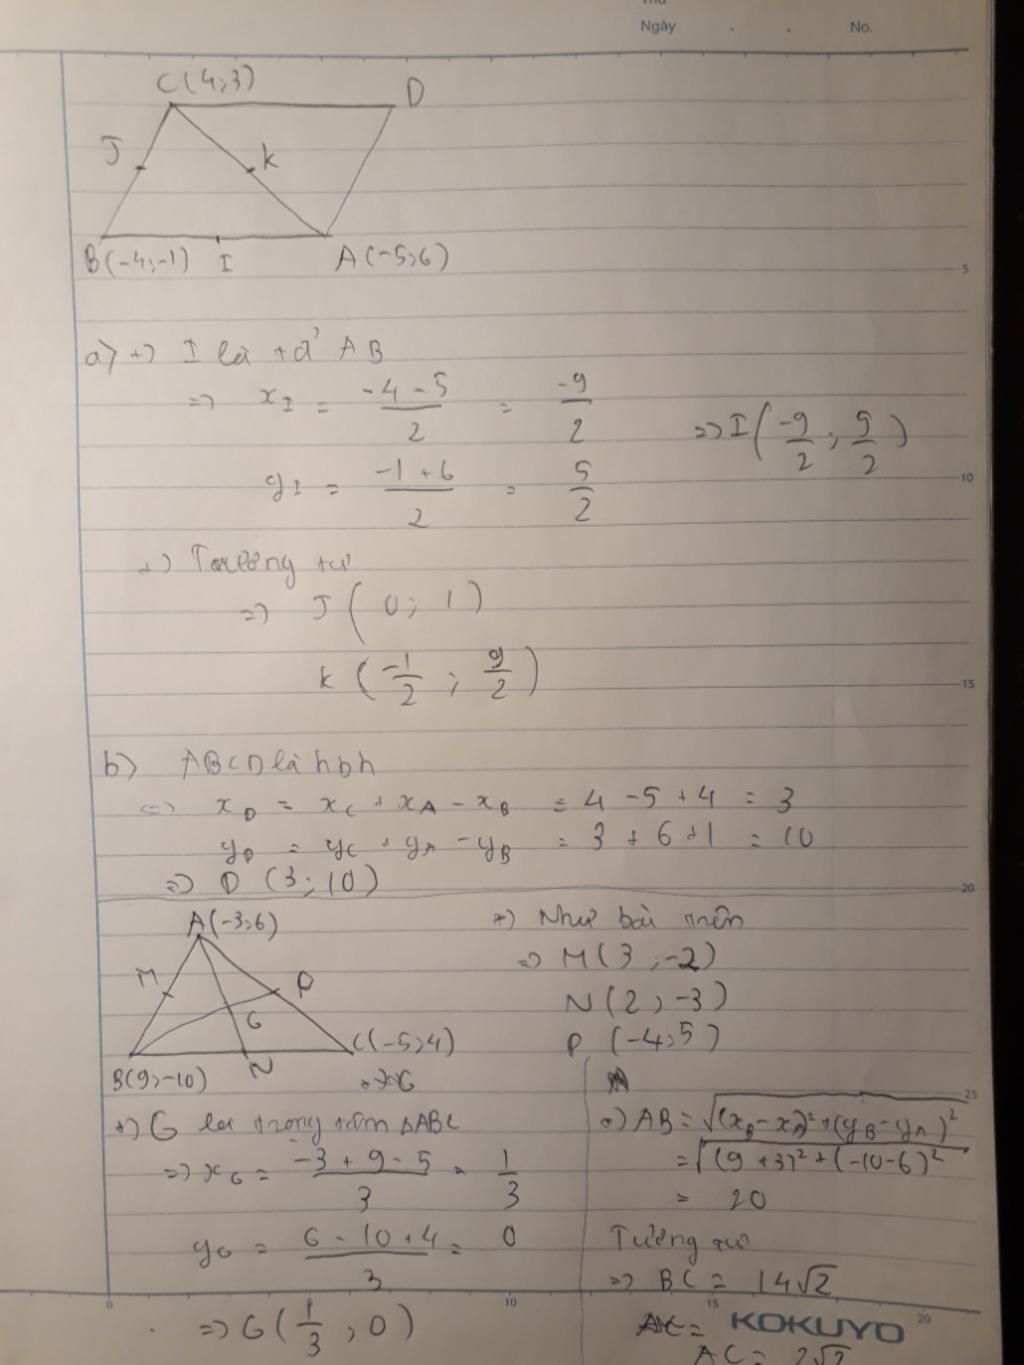 Thứ
Ngày . . No.
C(4;3) D
J K
B(-4;-1) I A(-5;6)
5
a) +) I là tđ' AB
=> x_I = (-4-5)/2 = -9/2
=> I(-9/2; 5/2)
y_I = (-1+6)/2 = 5/2
10
+) Tương tự
=> J(0; 1)
K(-1/2; 9/2)
15
b) ABCD là hbh
=> x_D = x_C + x_A - x_B = 4 - 5 + 4 = 3
y_D = y_C + y_A - y_B = 3 + 6 + 1 = 10
=> D (3; 10)
20
A(-3;6)
M P
G
B(9;-10) N C(-5;4)
+) Như bài trên
=> M(3;-2)
N(2;-3)
P(-4;5)
25
+) G là trọng tâm ΔABC
=> x_G = (-3+9-5)/3 = 1/3
y_G = (6-10+4)/3 = 0
=> G(1/3; 0)
+) AB = √((x_B-x_A)²+(y_B-y_A)²)
= √((9+3)²+(-10-6)²)
= 20
Tương tự
=> BC = 14√2
AC = 2√2
0 10 15 20
KOKUYO